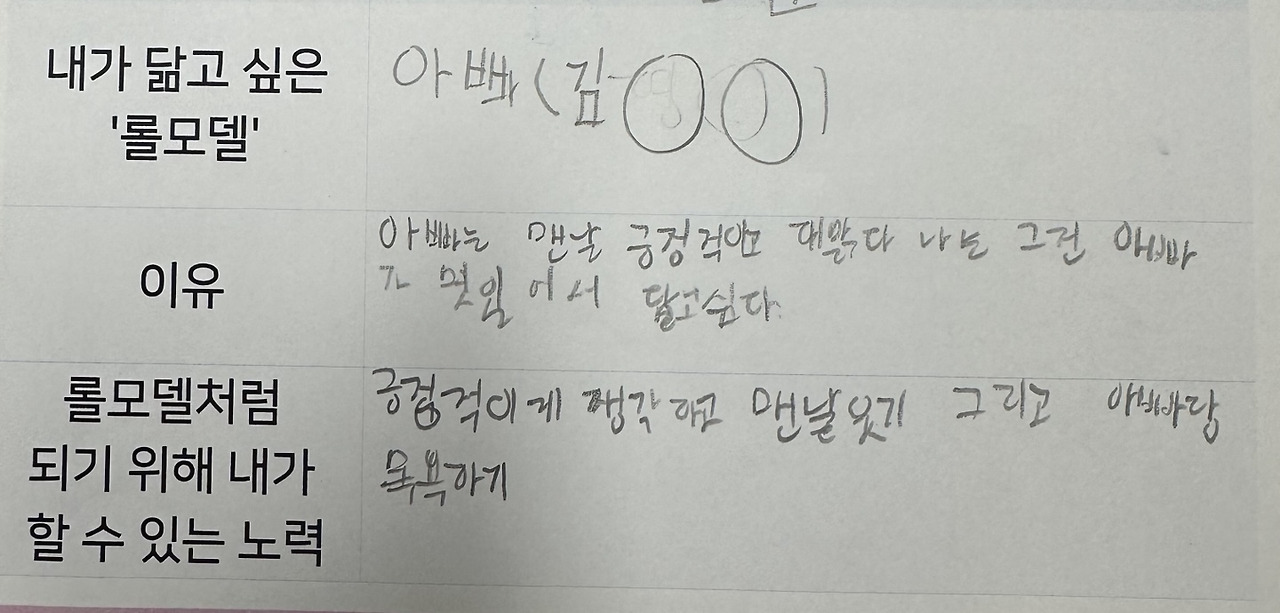 내가 닮고 싶은
'롤모델'
아빠 (김 ○ ○)
이유
아빠는 맨날 긍정적이고 해맑다 나는 그런 아빠
가 멋있어서 닮고싶다.
롤모델처럼
되기 위해 내가
할 수 있는 노력
긍정적이게 생각하고 맨날웃기 그리고 아빠랑
목욕하기